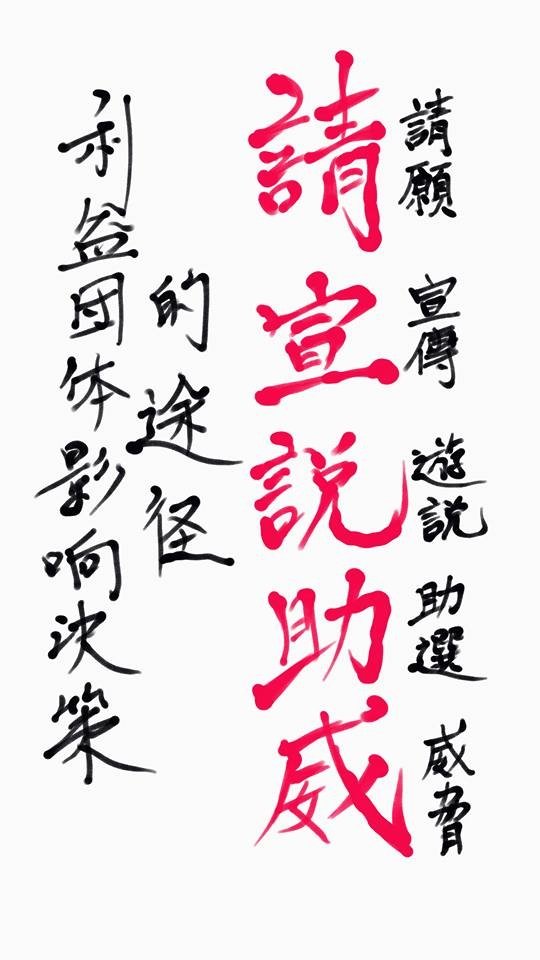 利益团体影响决策
的途径
請宣說助威
請願
宣傳
遊說
助選
威脅